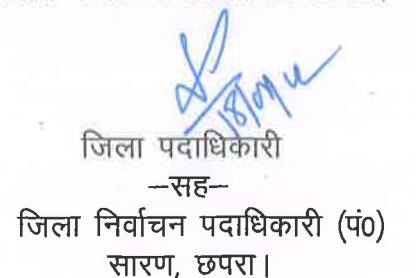 जिला पदाधिकारी
–सह–
जिला निर्वाचन पदाधिकारी (पं0)
सारण, छपरा।